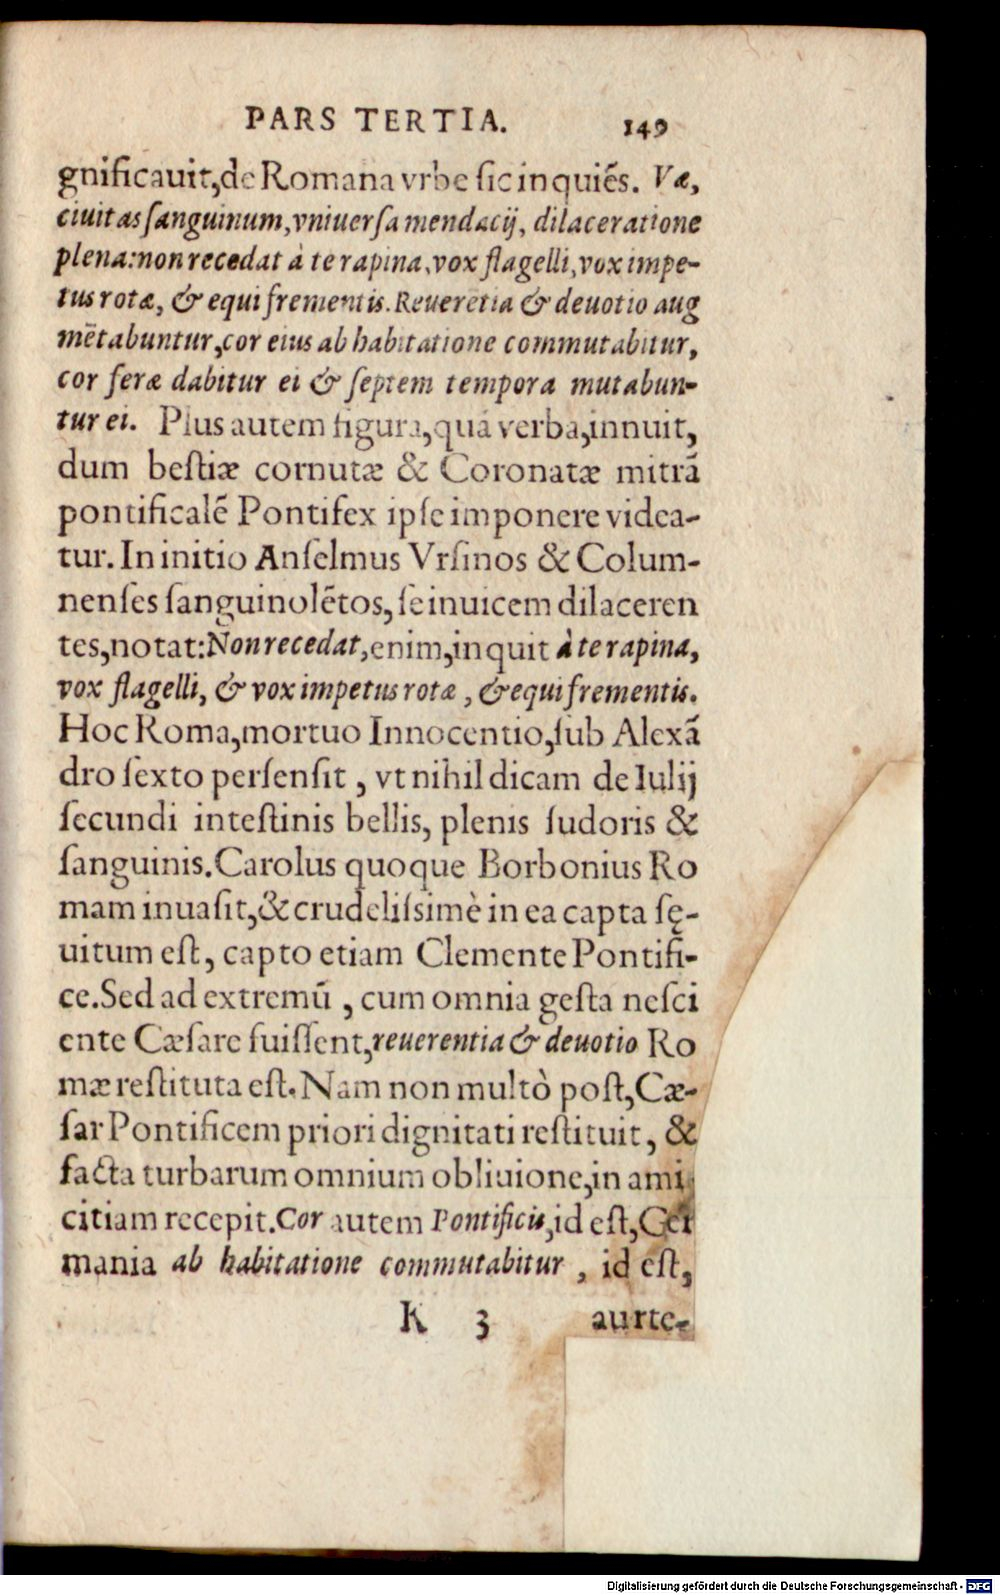 PARS TERTIA. 149
gnificauit, de Romana vrbe ſic inquiẽs. Væ,
ciuitas ſanguinum, vniuerſa mendacij, dilaceratione
plena: non recedat à te rapina, vox flagelli, vox impe-
tus rotæ, & equi frementis. Reuerẽtia & deuotio aug
mẽtabuntur, cor eius ab habitatione commutabitur,
cor feræ dabitur ei & ſeptem tempora mutabun-
tur ei. Plus autem figura, quá verba, innuit,
dum beſtiæ cornutæ & Coronatæ mitrã
pontificalẽ Pontifex ipſe imponere videa-
tur. In initio Anſelmus Vrſinos & Colum-
nenſes ſanguinolẽtos, ſe inuicem dilaceren
tes, notat: Non recedat, enim, inquit à te rapina,
vox flagelli, & vox impetus rotæ, & equi frementis.
Hoc Roma, mortuo Innocentio, ſub Alexã
dro ſexto perſenſit, vt nihil dicam de Iulij
ſecundi inteſtinis bellis, plenis ſudoris &
ſanguinis. Carolus quoque Borbonius Ro
mam inuaſit, & crudeliſsimè in ea capta ſę-
uitum eſt, capto etiam Clemente Pontifi-
ce. Sed ad extremũ, cum omnia geſta neſci
ente Cæſare fuiſſent, reuerentia & deuotio Ro
mæ reſtituta eſt. Nam non multò poſt, Cæ-
ſar Pontificem priori dignitati reſtituit, &
facta turbarum omnium obliuione, in ami
citiam recepit. Cor autem Pontificis, id eſt, Ger
mania ab habitatione commutabitur, id eſt,
K 3 aurte-
Digitalisierung gefördert durch die Deutsche Forschungsgemeinschaft - DFG